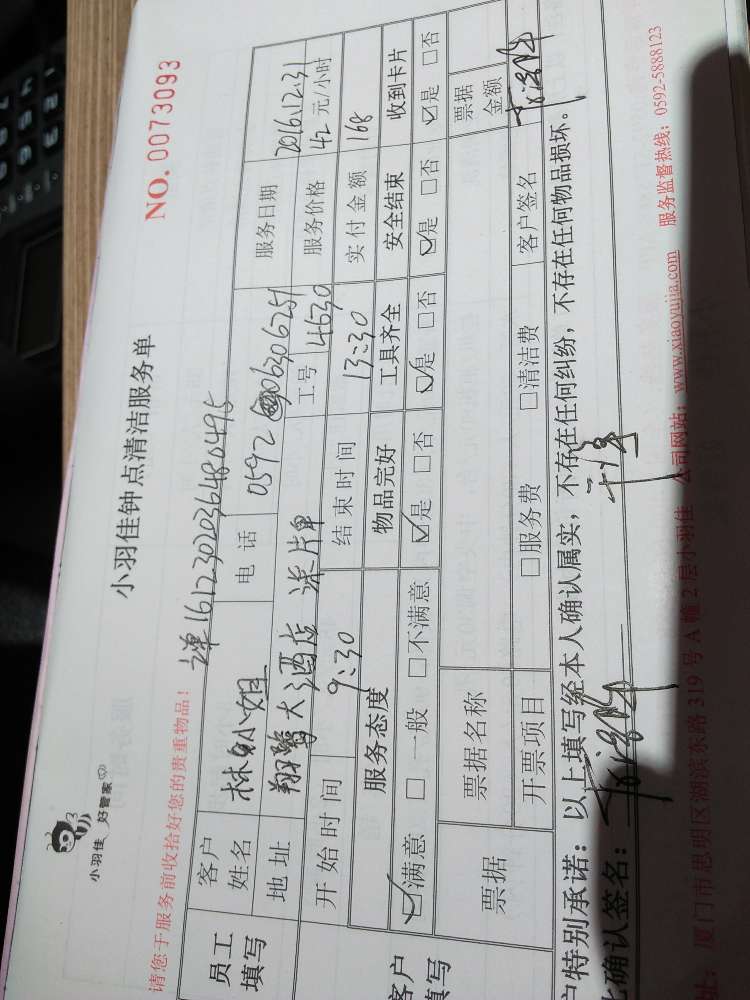 小羽佳 好管家
小羽佳钟点清洁服务单
NO. 0073093
请您于服务前收拾好您的贵重物品!
单161230203648049
员工填写
客户姓名 林小姐 电话 0592 06306251 服务日期 2016.12.31
地址 翔鹭大酒店 工号 4630 服务价格 42 元/小时
开始时间 9:30 结束时间 13:30 实付金额 168
客户填写
服务态度 物品完好 工具齐全 安全结束 收到卡片
☑满意 □一般 □不满意 ☑是 □否 ☑是 □否 ☑是 □否 ☑是 □否
票据 票据名称 票据金额
开票项目 □服务费 □清洁费 客户签名
户特别承诺:以上填写经本人确认属实,不存在任何纠纷,不存在任何物品损坏。
比确认签名:
址:厦门市思明区湖滨东路 319 号 A 幢 2 层小羽佳 公司网站:www.xiaoyujia.com 服务监督热线:0592-5888123